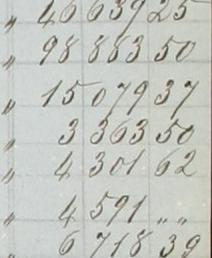 „ 46 639 25
„ 98 883 50
„ 15 079 37
„ 3 363 50
„ 4 301 62
„ 4 591 „ „
„ 6 718 39